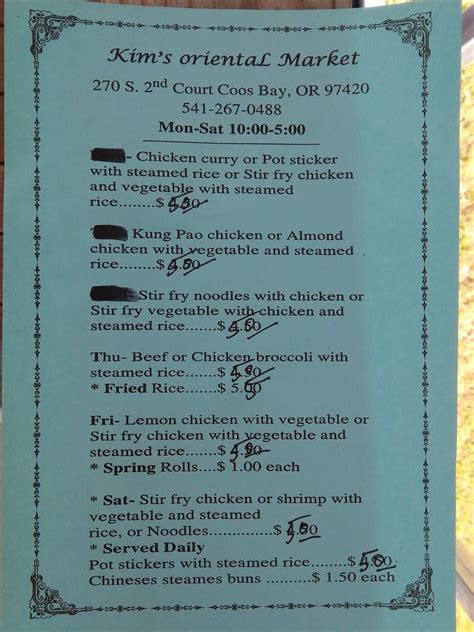 Kim's orientaL Market
270 S. 2nd Court Coos Bay, OR 97420
541-267-0488
Mon-Sat 10:00-5:00
- Chicken curry or Pot sticker
with steamed rice or Stir fry chicken
and vegetable with steamed
rice........$
Kung Pao chicken or Almond
chicken with vegetable and steamed
rice........$
- Stir fry noodles with chicken or
Stir fry vegetable with chicken and
steamed rice......$
Thu- Beef or Chicken broccoli with
steamed rice......$
* Fried Rice......$
Fri- Lemon chicken with vegetable or
Stir fry chicken with vegetable and
steamed rice......$
* Spring Rolls....$ 1.00 each
* Sat- Stir fry chicken or shrimp with
vegetable and steamed
rice, or Noodles.............$
* Served Daily
Pot stickers with steamed rice.......$
Chineses steames buns ..........$ 1.50 each